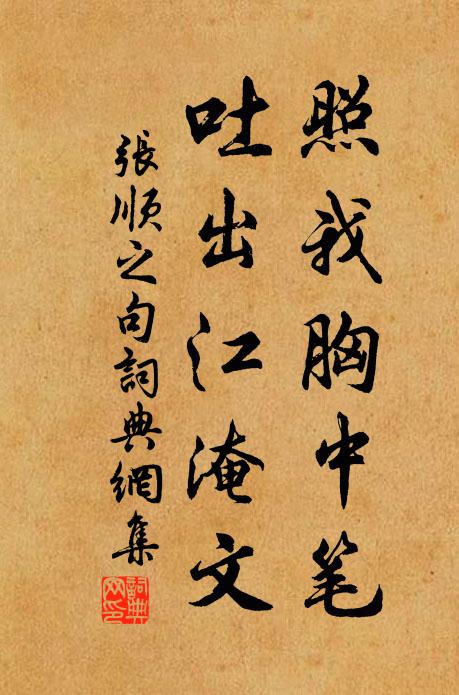 照我胸中笔
吐出江淹文
張順之句詞典網集
詞典网印